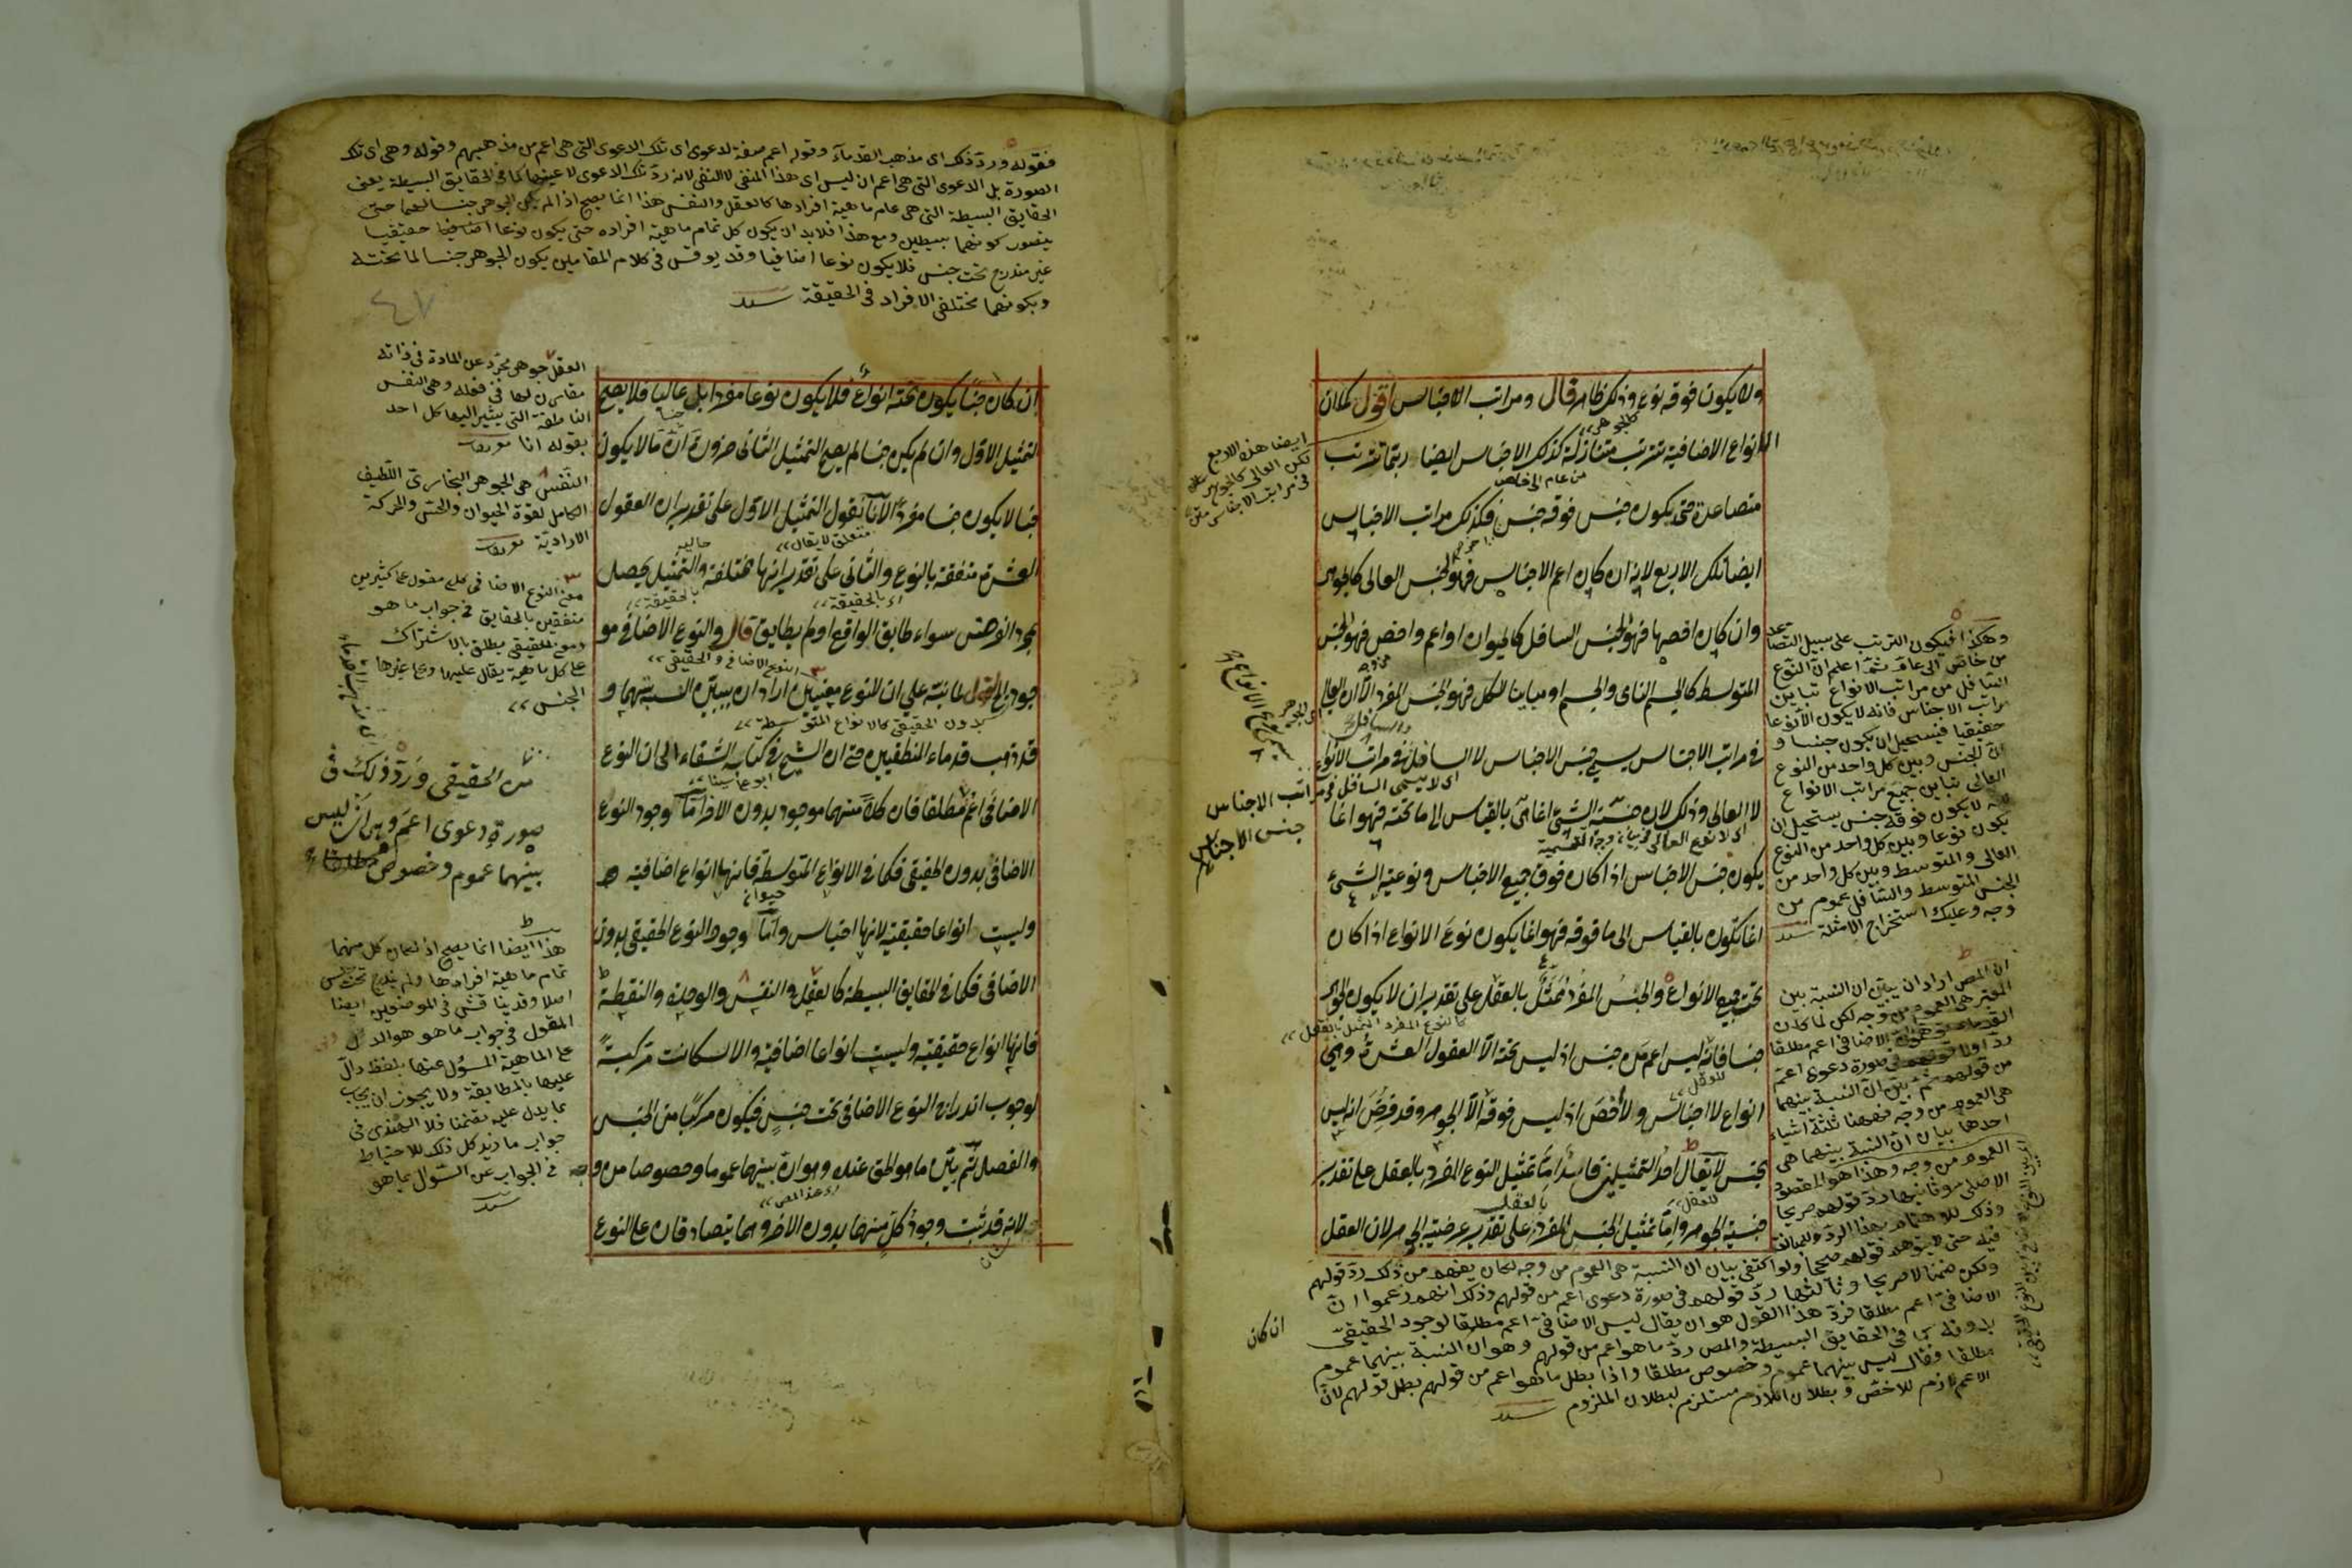 ولا يكون فوقه نوع وذلك ظاهر قال ومراتب الاجناس اقول كما ان
الانواع الاضافية تترتب متنازلة كذلك الاجناس ايضا ربما تترتب
متصاعدة حتى يكون جنس فوقه جنس فكذلك مراتب الاجناس
ايضا تلك الاربع لانه ان كان اعم الاجناس فهو الجنس العالى كالجوهر
وان كان اخصها فهو الجنس السافل كالحيوان او اعم واخص فهو الجنس
المتوسط كالجسم النامى والجسم او مباينا للكل فهو الجنس المفرد الا ان العالى
فى مراتب الاجناس يسمى جنس الاجناس لا السافل وفى مراتب الانواع
لا العالى وذلك لان جنسية الشئ انما هى بالقياس الى ما تحته فهو انما
يكون جنس الاجناس اذا كان فوق جميع الاجناس ونوعية الشئ
انما تكون بالقياس الى ما فوقه فهو انما يكون نوع الانواع اذا كان
تحت جميع الانواع والجنس المفرد ممثل بالعقل على تقدير ان لا يكون الجوهر
جنسا فانه ليس اعم من جنس اذ ليس تحته الا العقول العشرة وهى
انواع لا اجناس ولا اخص اذ ليس فوقه الا الجوهر وقد فرض انه ليس
بجنس لا يقال احد التمثيلين فاسد اما تمثيل النوع المفرد بالعقل على تقدير
جنسية الجوهر واما تمثيل الجنس المفرد على تقدير عرضية الجوهر لان العقل
ان كان
ايضا هذه الاربع
لكن العالى كالجوهر
فى مراتب الاجناس
جنس الاجناس
وهكذا فيكون الترتب على سبيل التصاعد
من خاص الى عام ثم اعلم ان النوع
السافل من مراتب الانواع تباين
مراتب الاجناس فانه لا يكون الا نوعا
حقيقيا فيستحيل ان يكون جنسا و
ان الجنس وبين كل واحد من النوع
العالى تباين جميع مراتب الانواع
لانه لا يكون فوقه جنس يستحيل ان
يكون نوعا وبين كل واحد من النوع
العالى والمتوسط وبين كل واحد من
الجنس المتوسط والسافل عموم من
وجه وعليك استخراج الامثلة سيد
ان المص اراد ان يبين ان النسبة بين
هى العموم من وجه لكن لما كان
القدماء الاضافى اعم مطلقا
رد اولا قولهم فى صورة دعوى اعم
من قولهم ثم بين ان النسبة بينهما
هى العموم من وجه فههنا ثلثة اشياء
احدها بيان ان النسبة بينهما هى
العموم من وجه وهذا هو المقصود
الاصلى وثانيها رد قولهم صريحا
فيه حتى لا يتوهم قولهم صحيحا ولو اكتفى ببيان ان النسبة هى العموم من وجه لكان يفهم من ذلك رد قولهم
ولكن ضمنا لا صريحا وثالثها رد قولهم فى صورة دعوى اعم من قولهم وذلك انهم زعموا ان
الاضافى اعم مطلقا فرد هذا القول هو ان يقال ليس الاضافى اعم مطلقا لوجود الحقيقى
بدونه كما فى الحقايق البسيطة والمص رد ما هو اعم من قولهم وهو ان النسبة بينهما عموم
مطلقا فقال ليس بينهما عموم وخصوص مطلقا واذا بطل ما هو اعم من قولهم بطل قولهم لان
الاعم لازم للاخص وبطلان اللازم مستلزم لبطلان الملزوم سيد
فقوله ورد ذلك اى مذهب القدماء وقوله اعم صفة لدعوى اى تلك الدعوى التى هى اعم من مذهبهم وقوله وهى اى تلك
الصورة بل الدعوى التى هى اعم ان ليس اى هذا المنفى لا النفى لانه رد تلك الدعوى لا عينها كما فى الحقايق البسيطة يعنى
الحقايق البسيطة التى هى عام ماهية افرادها كالعقل والنفس هذا انما يصح اذا لم يكن الجوهر جنسا لهما حتى
يتصور كونهما بسيطين ومع هذا فلا بد ان يكون كل تمام ماهية افراده حتى يكون نوعا حقيقيا
غير مندرج تحت جنس فلا يكون نوعا اضافيا وقد يوقش فى كلام المقامين يكون الجوهر جنسا لما تحته
وبكونهما مختلفى الافراد فى الحقيقة سيد
٤٧
ان كان جنسا يكون تحته انواع فلا يكون نوعا مفردا بل عاليا فلا يصح
التمثيل الاول وان لم يكن جنسا لم يصح التمثيل الثانى ضرورة ان ما لا يكون
جنسا لا يكون جنسا مفردا لانا نقول التمثيل الاول على تقدير ان العقول
العشرة متفقة بالنوع والثانى على تقدير انها مختلفة والتمثيل يحصل
بمجرد الفرض سواء طابق الواقع او لم يطابق قال والنوع الاضافى مو
جود الخ اقول لما نبه على ان للنوع معنيين اراد ان يبين النسبة بينهما و
قد ذهب قدماء المنطقيين حتى ان الشيخ فى كتاب الشفاء الى ان النوع
الاضافى اعم مطلقا فان كلا منهما موجود بدون الاخر اما وجود النوع
الاضافى بدون الحقيقى فكما فى الانواع المتوسطة فانها انواع اضافية
وليست انواعا حقيقية لانها اجناس واما وجود النوع الحقيقى بدون
الاضافى فكما فى الحقايق البسيطة كالعقل والنفس والوحدة والنقطة
فانها انواع حقيقية وليست انواعا اضافية والا لكانت مركبة
لوجوب اندراج النوع الاضافى تحت جنس فيكون مركبا من الجنس
والفصل ثم بين ما هو الحق عنده وهو ان بينهما عموما وخصوصا من وجه
لانه قد ثبت وجود كل منهما بدون الاخر وهما يتصادقان على النوع
العقل جوهر مجرد عن المادة فى ذاته
مقارن لها فى فعله وهى النفس
الناطقة التى يشير اليها كل احد
بقوله انا تعريفات
النفس هى الجوهر البخارى اللطيف
الحامل لقوة الحيوان والحس والحركة
الارادية تعريفات
معنى النوع الاضافى كلى مقول على كثيرين
متفقين بالحقايق فى جواب ما هو
ومع الحقيقى يطلق بالاشتراك
على كل ماهية يقال عليها وعلى غيرها
الجنس
من الحقيقى ورد ذلك فى
صورة دعوى اعم وهى ان ليس
بينهما عموم وخصوص
هذا ايضا انما يصح اذا كان كل منهما
تمام ماهية افرادها ولم يندرج تحت جنس
اصلا وقد يناقش فى الموضعين ايضا
المقول فى جواب ما هو هو الدال
على الماهية المسؤل عنها بلفظ دال
عليها بالمطابقة ولا يجوز ان يجب
بما يدل عليه تضمنا فلا الهندى فى
جواب ما زيد كل ذلك للاحتياط
فى الجواب عن السؤال بما هو
سيد